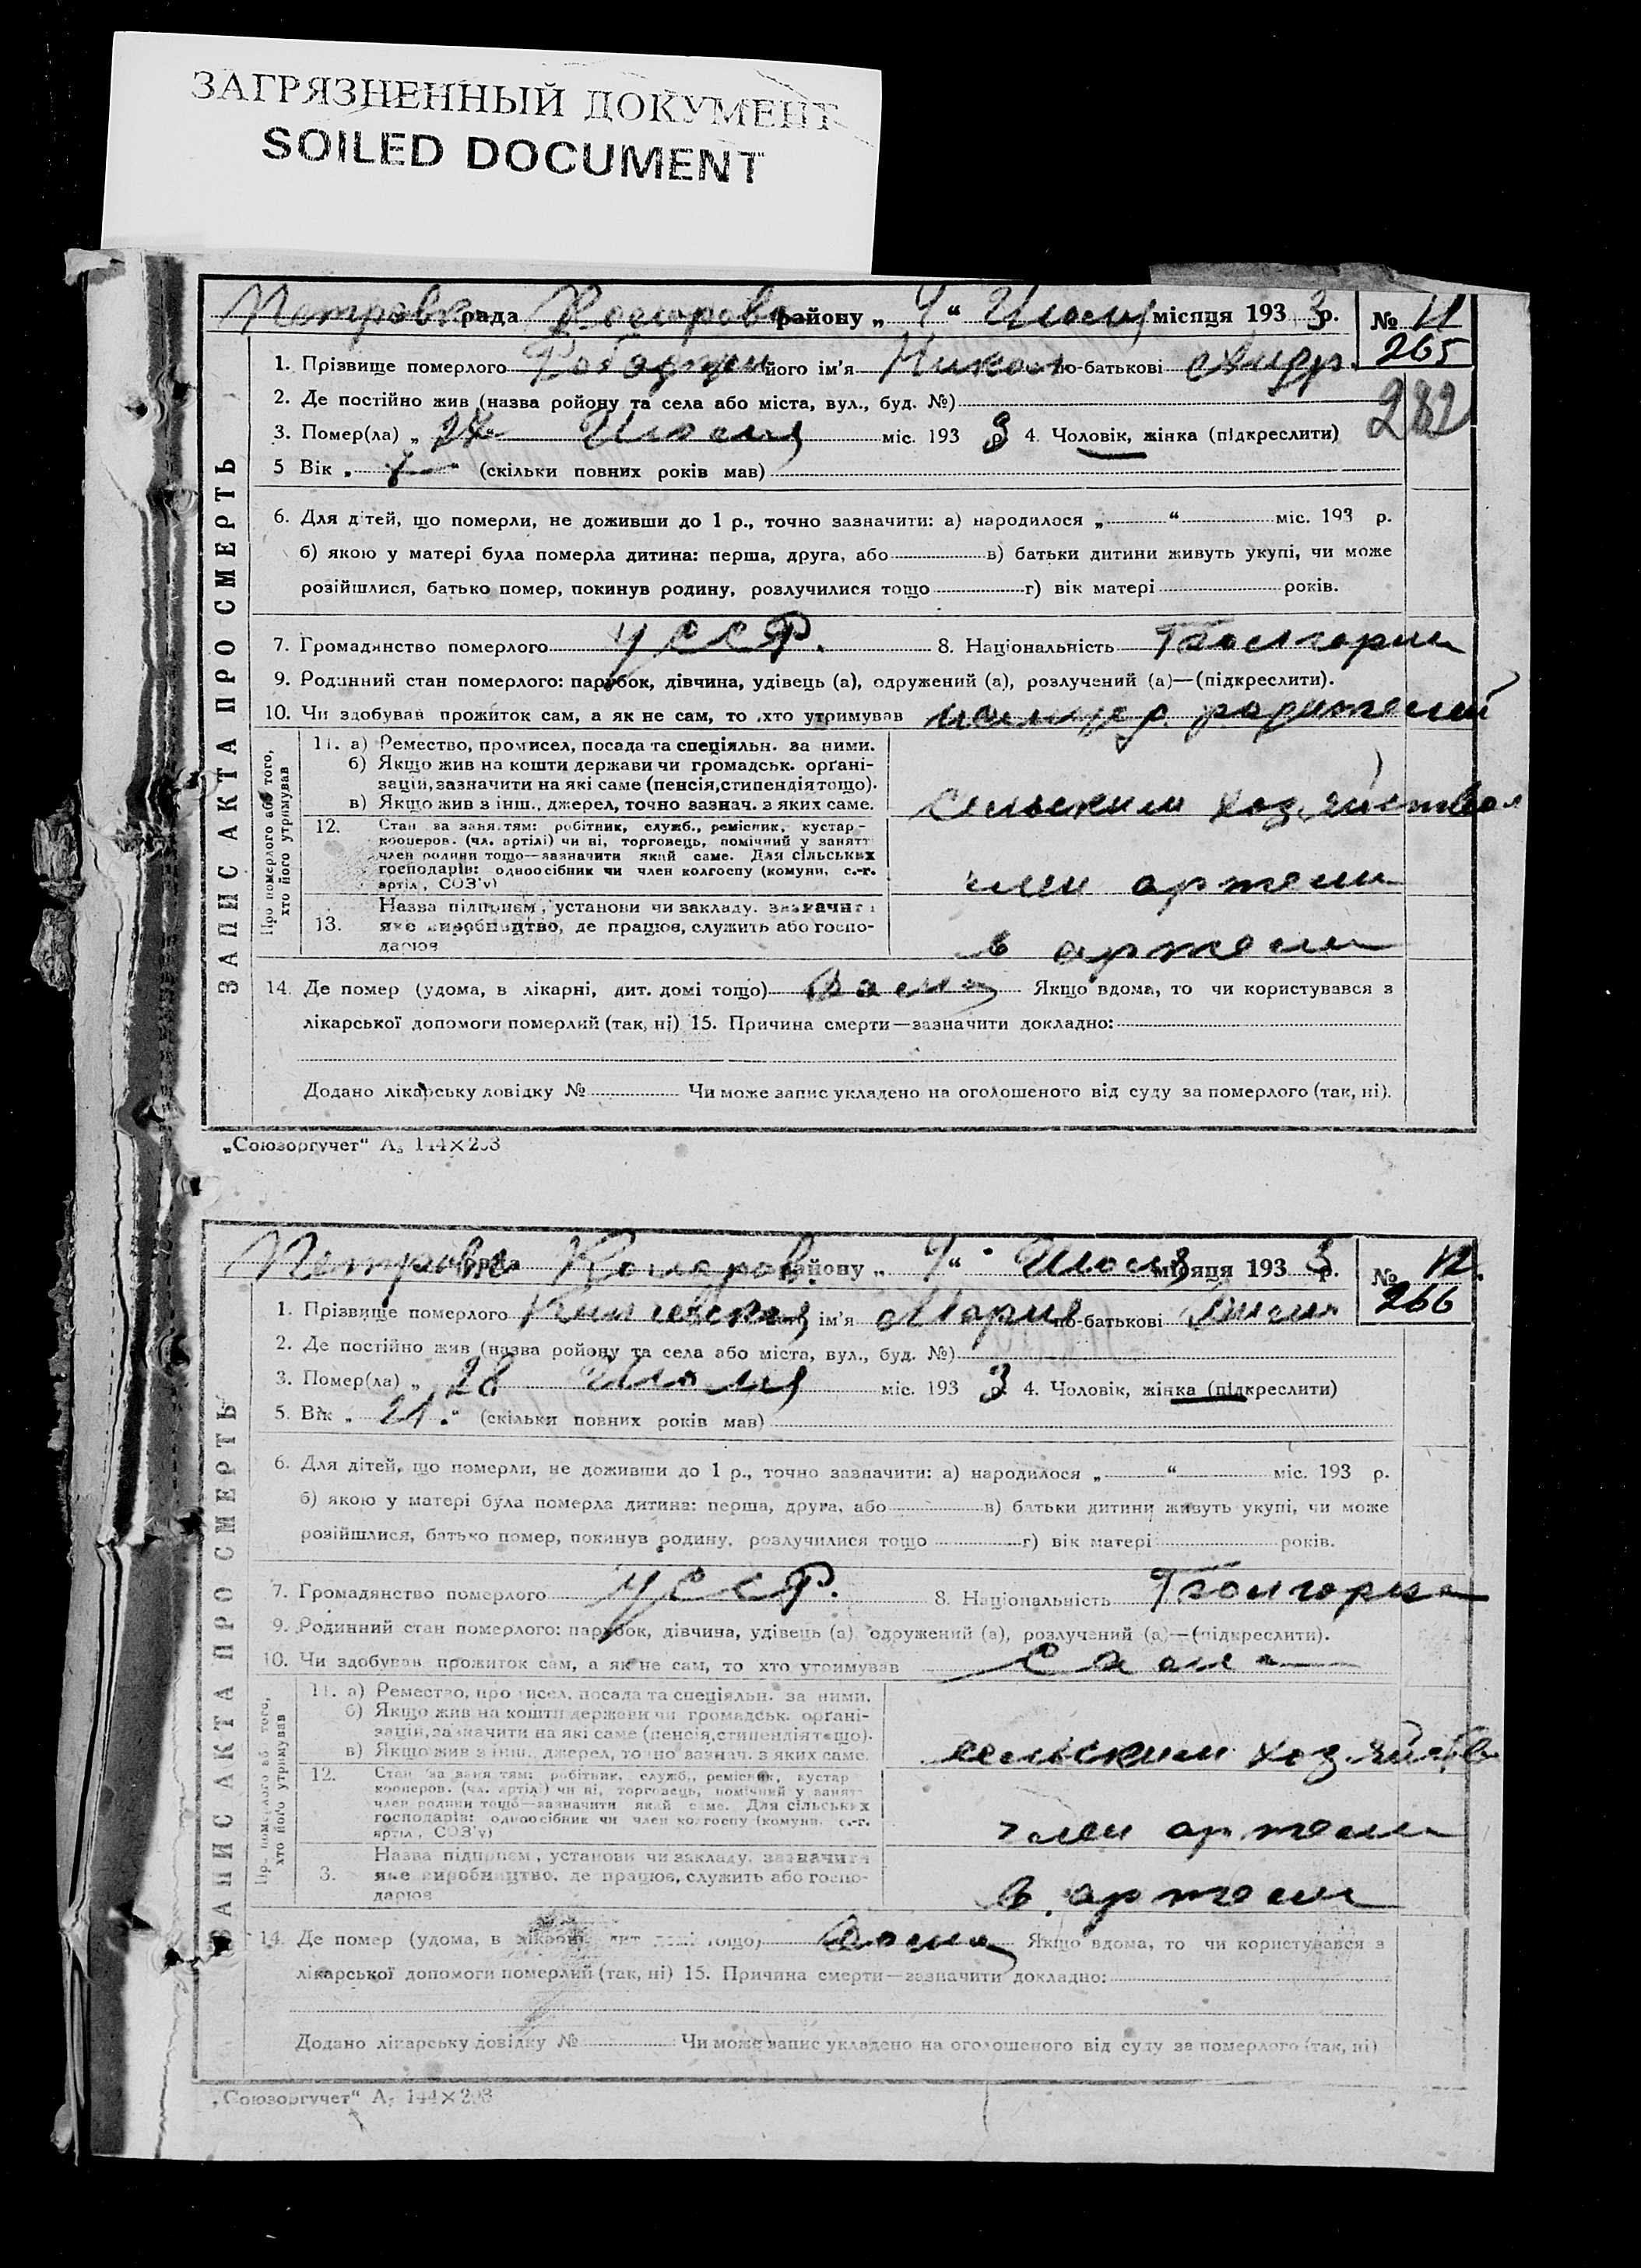 ЗАГРЯЗНЕННЫЙ ДОКУМЕНТ
SOILED DOCUMENT
ЗАПИС АКТА ПРО СМЕРТЬ
Петровк рада району „ 4 “ Июля місяця 193 3 р. № 11
265
1. Прізвище померлого його ім'я Никол по-батькові
282
2. Де постійно жив (назва ройону та села або міста, вул., буд. №)
3. Помер(ла) „ Июля міс. 193 3 р 4. Чоловік, жінка (підкреслити)
5 Вік „ “ (скільки повних років мав)
6. Для дітей, що померли, не доживши до 1 р., точно зазначити: а) народилося „ “ міс. 193 р.
б) якою у матері була померла дитина: перша, друга, або в) батьки дитини живуть укупі, чи може
розійшлися, батько помер, покинув родину, розлучилися тощо г) вік матері років.
7. Громадянство померлого УССР. 8. Національність Болгарин
9. Родинний стан померлого: парубок, дівчина, удівець (а), одружений (а), розлучений (а)—(підкреслити).
10. Чи здобував прожиток сам, а як не сам, то хто утримував родителей
Про померлого або того, хто його утримував
11. а) Ремество, промисел, посада та спеціяльн. за ними.
б) Якщо жив на кошти держави чи громадськ. орґані-
зацій, зазначити на які саме (пенсія, стипендія тощо).
в) Якщо жив з інш., джерел, точно вазнач. з яких саме. сельским хозяйством
12. Стан за заняттям: робітник, служб., ремісник, кустар-
кооперов. (чл. артілі) чи ні, торговець, помічний у занятт
член родини тощо—зазначити який саме. Для сільських
господарів: одноосібник чи член колгоспу (комуни, с.-г.
артіл, СОЗ'у) член артели
13. Назва підприєм, установи чи закладу. зазначити
яке виробництво, де працює, служить або госпо-
дарює в артели
14. Де помер (удома, в лікарні, дит. домі тощо) дома Якщо вдома, то чи користувався з
лікарської допомоги померлий (так, ні) 15. Причина смерти—зазначити докладно:
Додано лікарську довідку № Чи може запис укладено на оголошеного від суду за померлого (так, ні).
„Союзоргучет“ А₅ 144×203
ЗАПИС АКТА ПРО СМЕРТЬ
Петровк рада Коларов. району „ 4 “ Июля місяця 193 3 р. № 12.
266
1. Прізвище померлого ім'я Мария по-батькові
2. Де постійно жив (назва ройону та села або міста, вул., буд. №)
3. Помер(ла) „ 28 Июля міс. 193 3 4. Чоловік, жінка (підкреслити)
5. Вік „ 21. “ (скільки повних років мав)
6. Для дітей, що померли, не доживши до 1 р., точно зазначити: а) народилося „ “ міс. 193 р.
б) якою у матері була померла дитина: перша, друга, або в) батьки дитини живуть укупі, чи може
розійшлися, батько помер, покинув родину, розлучилися тощо г) вік матері років.
7. Громадянство померлого УССР. 8. Національність Болгарка
9. Родинний стан померлого: парубок, дівчина, удівець (а) одружений (а), розлучений (а)—(підкреслити).
10. Чи здобував прожиток сам, а як не сам, то хто утримував Сама
Про померлого або того, хто його утримував
11. а) Ремество, промисел, посада та спеціяльн. за ними.
б) Якщо жив на кошти держави чи громадськ. орґані-
зацій, зазначити на які саме (пенсія, стипендія тощо).
в) Якщо жив з інш., джерел, точно вазнач. з яких саме. сельским хозяйств
12. Стан за заняттям: робітник, служб., ремісник, кустар
кооперов. (чл. артілі) чи ні, торговець, помічний у занятт
член родини тощо—зазначити який саме. Для сільських
господарів: одноосібник чи член колгоспу (комуни, с.-г.
артіл, СОЗ'у) член артели
3. Назва підприєм, установи чи закладу. зазначити
яке виробництво, де працює, служить або госпо-
дарює в артели
14. Де помер (удома, в лікарні, дит. домі тощо) дома Якщо вдома, то чи користувався з
лікарської допомоги померлий (так, ні) 15. Причина смерти—зазначити докладно:
Додано лікарську довідку № Чи може запис укладено на оголошеного від суду за померлого (так, ні)
„Союзоргучет“ А₅ 144×203